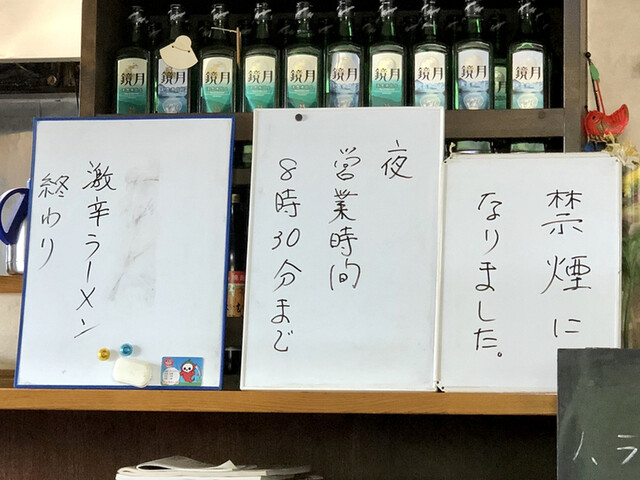 禁煙に
なりました。
夜
営業時間
8時30分まで
激辛ラーメン
終わり
鏡月
鏡月
鏡月
鏡月
鏡月
鏡月
鏡月
鏡月
鏡月
鏡月
ラ